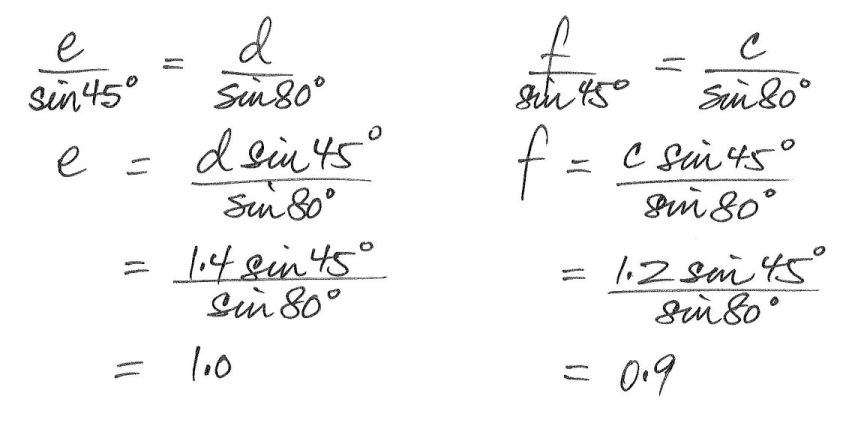 e/sin45° = d/sin80°
e = d sin45°/sin80°
= 1.4 sin45°/sin80°
= 1.0
f/sin45° = c/sin80°
f = c sin45°/sin80°
= 1.2 sin45°/sin80°
= 0.9